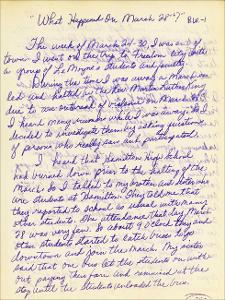 "What Happened On March 28th?" BLK-1
The week of March 24-30, I was out of
town. I went on the trip to Freedom City with
a group of LeMoyne students and faculty.
During the time I was away a March was
led and halted by the Rev. Martin Luther King
due to an outbreak of violence on March 28.
I heard many rumors while I was away. So I
decided to investigate them by asking questions
of persons who really saw and participated.
I heard that Hamilton High School
had burned down prior to the halting of the
March. So I talked to my brother and sister who
are students at Hamilton. They told me that
they reported to school as usual with many
other students. The attendance that day March
28 was very fair. So about 9 O'clock they and
other students started to catch buses to go
downtown and join the March. My sister
said that one bus let the students on with
out paying their fare and remained at the
stop until the students unloaded the bus.